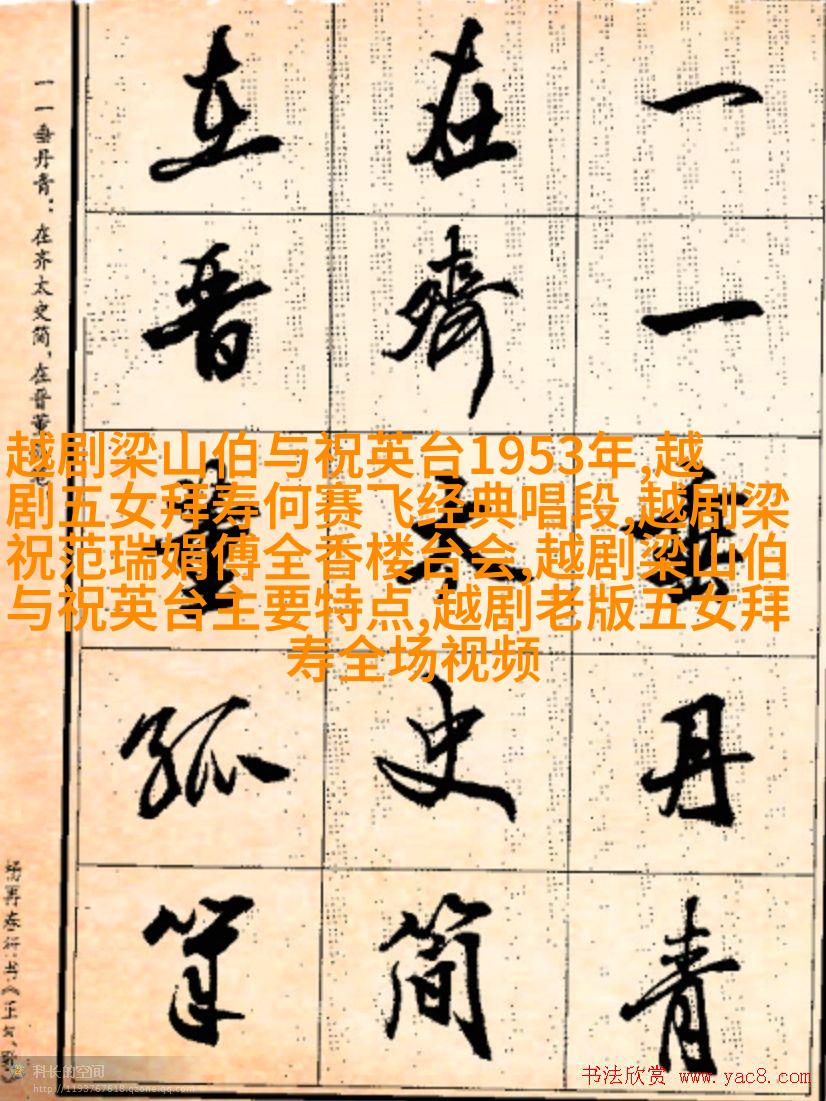 一一垂丹青
在齐太史简
在晋董狐笔
一一垂丹青：在齐太史简，在晋董
越剧梁山伯与祝英台1953年,越
剧五女拜寿何赛飞经典唱段,越剧梁
祝范瑞娟傅全香楼台会,越剧梁山伯
与祝英台主要特点,越剧老版五女拜
寿全场视频
科长的空间
http://1193767618.qzone.qq.com
书法欣赏 www.yac8.com